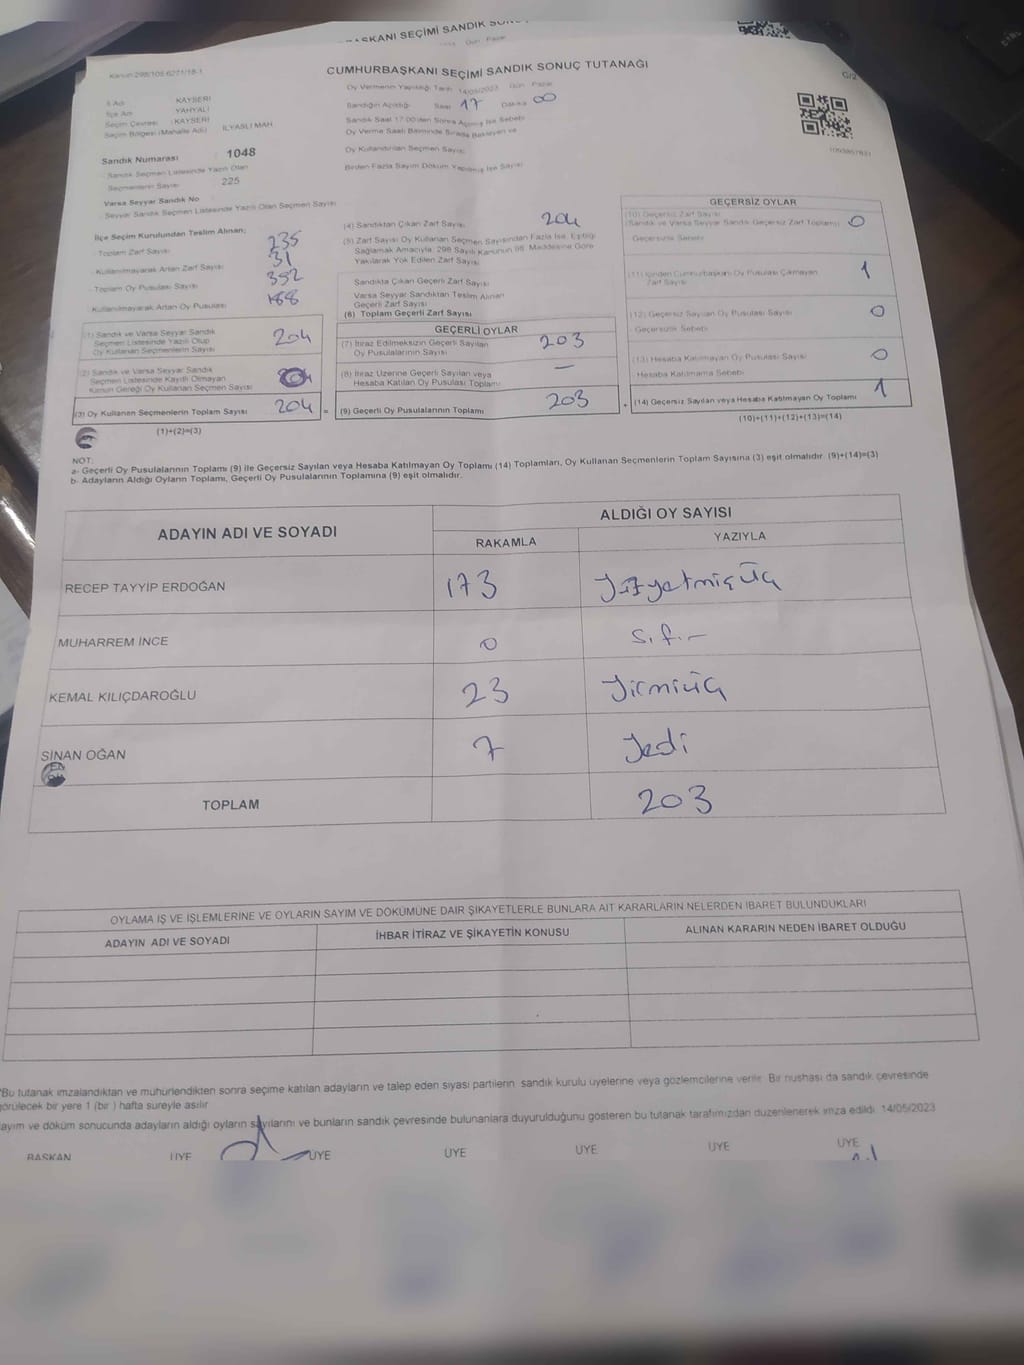 BAŞKANI SEÇİMİ SANDIK
Gün Pazar
Kanun 298/105-6271/18-1
CUMHURBAŞKANI SEÇİMİ SANDIK SONUÇ TUTANAĞI
G/2
İl Adı KAYSERİ
İlçe Adı YAHYALI
Seçim Çevresi KAYSERİ
Seçim Bölgesi (Mahalle Adı) İLYASLI MAH
Sandık Numarası 1048
Sandık Seçmen Listesinde Yazılı Olan
Seçmenlerin Sayısı 225
Varsa Seyyar Sandık No
Seyyar Sandık Seçmen Listesinde Yazılı Olan Seçmen Sayısı
Oy Vermenin Yapıldığı Tarih 14/05/2023 Gün Pazar
Sandığın Açıldığı Saat 17 Dakika 00
Sandık Saat 17:00'den Sonra Açılmış İse Sebebi
Oy Verme Saati Bitiminde Sırada Bekleyen ve
Oy Kullandırılan Seçmen Sayısı
Birden Fazla Sayım Döküm Yapılmış İse Sayısı
İlçe Seçim Kurulundan Teslim Alınan;
Toplam Zarf Sayısı 235
Kullanılmayarak Artan Zarf Sayısı 31
Toplam Oy Pusulası Sayısı 392
Kullanılmayarak Artan Oy Pusulası 188
(1) Sandık ve Varsa Seyyar Sandık
Seçmen Listesinde Yazılı Olup
Oy Kullanan Seçmenlerin Sayısı 204
(2) Sandık ve Varsa Seyyar Sandık
Seçmen Listesinde Kayıtlı Olmayan
Kanun Gereği Oy Kullanan Seçmen Sayısı
(3) Oy Kullanan Seçmenlerin Toplam Sayısı 204 =
(1)+(2)=(3)
(4) Sandıktan Çıkan Zarf Sayısı 204
(5) Zarf Sayısı Oy Kullanan Seçmen Sayısından Fazla İse, Eşitliği
Sağlamak Amacıyla, 298 Sayılı Kanunun 98. Maddesine Göre
Yakılarak Yok Edilen Zarf Sayısı
Sandıkta Çıkan Geçerli Zarf Sayısı
Varsa Seyyar Sandıktan Teslim Alınan
Geçerli Zarf Sayısı
(6) Toplam Geçerli Zarf Sayısı
GEÇERLİ OYLAR
(7) İtiraz Edilmeksizin Geçerli Sayılan
Oy Pusulalarının Sayısı 203
(8) İtiraz Üzerine Geçerli Sayılan veya
Hesaba Katılan Oy Pusulası Toplamı —
(9) Geçerli Oy Pusulalarının Toplamı 203 +
GEÇERSİZ OYLAR
(10) Geçersiz Zarf Sayısı
(Sandık ve Varsa Seyyar Sandık Geçersiz Zarf Toplamı) 0
Geçersizlik Sebebi
(11) İçinden Cumhurbaşkanı Oy Pusulası Çıkmayan
Zarf Sayısı 1
(12) Geçersiz Sayılan Oy Pusulası Sayısı 0
Geçersizlik Sebebi
(13) Hesaba Katılmayan Oy Pusulası Sayısı 0
Hesaba Katılmama Sebebi
(14) Geçersiz Sayılan veya Hesaba Katılmayan Oy Toplamı 1
(10)+(11)+(12)+(13)=(14)
NOT:
a- Geçerli Oy Pusulalarının Toplamı (9) ile Geçersiz Sayılan veya Hesaba Katılmayan Oy Toplamı (14) Toplamları, Oy Kullanan Seçmenlerin Toplam Sayısına (3) eşit olmalıdır. (9)+(14)=(3)
b- Adayların Aldığı Oyların Toplamı, Geçerli Oy Pusulalarının Toplamına (9) eşit olmalıdır.
ADAYIN ADI VE SOYADI
ALDIĞI OY SAYISI
RAKAMLA YAZIYLA
RECEP TAYYİP ERDOĞAN 173 Yüzyetmişüç
MUHARREM İNCE 0 Sıfır
KEMAL KILIÇDAROĞLU 23 Yirmiüç
SİNAN OĞAN 7 Yedi
TOPLAM 203
OYLAMA İŞ VE İŞLEMLERİNE VE OYLARIN SAYIM VE DÖKÜMÜNE DAİR ŞİKAYETLERLE BUNLARA AİT KARARLARIN NELERDEN İBARET BULUNDUKLARI
ADAYIN ADI VE SOYADI İHBAR İTİRAZ VE ŞİKAYETİN KONUSU ALINAN KARARIN NEDEN İBARET OLDUĞU
*Bu tutanak imzalandıktan ve mühürlendikten sonra seçime katılan adayların ve talep eden siyasi partilerin sandık kurulu üyelerine veya gözlemcilerine verilir. Bir nüshası da sandık çevresinde
görülecek bir yere 1 (bir ) hafta süreyle asılır.
ayım ve döküm sonucunda adayların aldığı oyların sayılarını ve bunların sandık çevresinde bulunanlara duyurulduğunu gösteren bu tutanak tarafımızdan düzenlenerek imza edildi. 14/05/2023
BAŞKAN ÜYE ÜYE ÜYE ÜYE ÜYE ÜYE